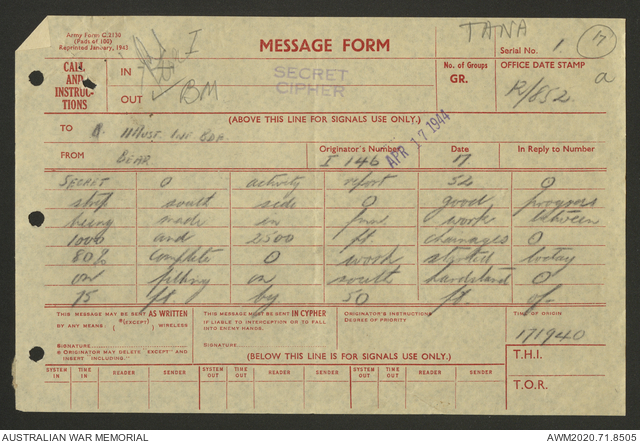 Army Form C.2130
(Pads of 100)
Reprinted January, 1943
I
MESSAGE FORM
TANA
Serial No. 1.
17
CALL
AND
INSTRUC-
TIONS
IN
OUT
BM
SECRET
CIPHER
No. of Groups
GR.
OFFICE DATE STAMP
a
R/852.
(ABOVE THIS LINE FOR SIGNALS USE ONLY.)
TO 11 Aust Inf Bde
APR 17 1944
FROM BEAR
Originator's Number
I 146
Date
17
In Reply to Number
SECRET O activity report 52 O
strip south side O good progress
being made in work between
1000 and 2500 ft. chainages O
80% complete O work started today
on filling on south hardstand O
75 ft by 50 ft of
THIS MESSAGE MAY BE SENT AS WRITTEN
BY ANY MEANS. (*(EXCEPT) WIRELESS
SIGNATURE
ORIGINATOR MAY DELETE EXCEPT" AND
INSERT INCLUDING."
THIS MESSAGE MUST BE SENT IN CYPHER
IF LIABLE TO INTERCEPTION OR TO FALL
INTO ENEMY HANDS.
SIGNATURE
ORIGINATOR'S INSTRUCTIONS
DEGREE OF PRIORITY
TIME OF ORIGIN
171940
(BELOW THIS LINE IS FOR SIGNALS USE ONLY.)
T.H.I.
T.O.R.
SYSTEM IN TIME IN READER SENDER SYSTEM OUT TIME OUT READER SENDER SYSTEM OUT TIME OUT READER SENDER
AUSTRALIAN WAR MEMORIAL
AWM2020.71.8505